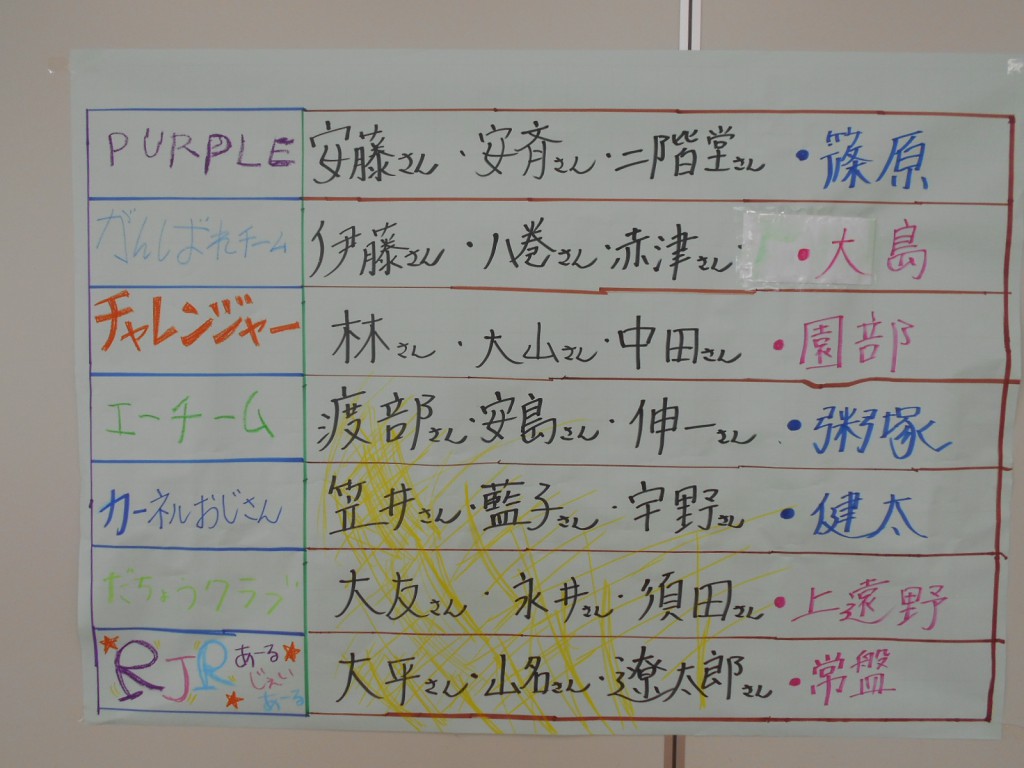 PURPLE 安藤さん・安斉さん・二階堂さん・篠原
がんばれチーム 伊藤さん・八巻さん・赤津さん・大島
チャレンジャー 林さん・大山さん・中田さん・園部
エーチーム 渡部さん・安島さん・伸一さん・粥塚
カーネルおじさん 笠井さん・藍子さん・宇野さん・健太
だちょうクラブ 大友さん・永井さん・須田さん・上遠野
RJR あーるじぇいあーる 大平さん・山名さん・遼太郎さん・常盤